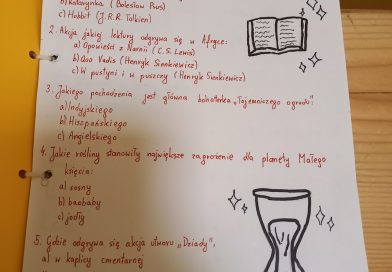 b) Katarynka (Bolesław Prus)
c) Hobbit (J.R.R. Tolkien)
2. Akcja jakiej lektury odgrywa się w Afryce:
a) Opowieści z Narnii (C.S. Lewis)
b) Quo Vadis (Henryk Sienkiewicz)
c) W pustyni i w puszczy (Henryk Sienkiewicz)
3. Jakiego pochodzenia jest główna bohaterka „Tajemniczego ogrodu":
a) Indyjskiego
b) Hiszpańskiego
c) Angielskiego
4. Jakie rośliny stanowiły największe zagrożenie dla planety Małego
księcia:
a) sosny
b) baobaby
c) jodły
5. Gdzie odgrywa się akcja utworu „Dziady",
a) w kaplicy cmentarnej